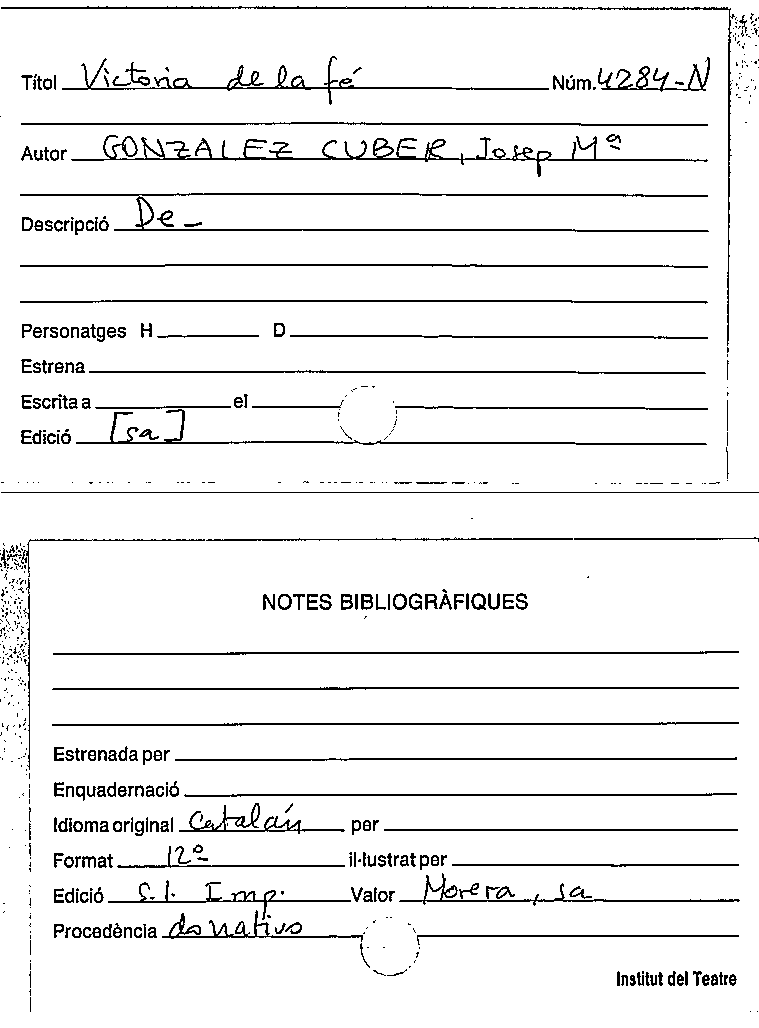 Títol Victoria de la fé Núm. 4284-N
Autor GONZALEZ CUBER, Josep Mª
Descripció De_
Personatges H D
Estrena
Escrita a el
Edició [sa]
NOTES BIBLIOGRÀFIQUES
Estrenada per
Enquadernació
Idioma original Catalán per
Format 12º il·lustrat per
Edició S.l. Imp. Valor Morera, sa
Procedència donativo
Institut del Teatre